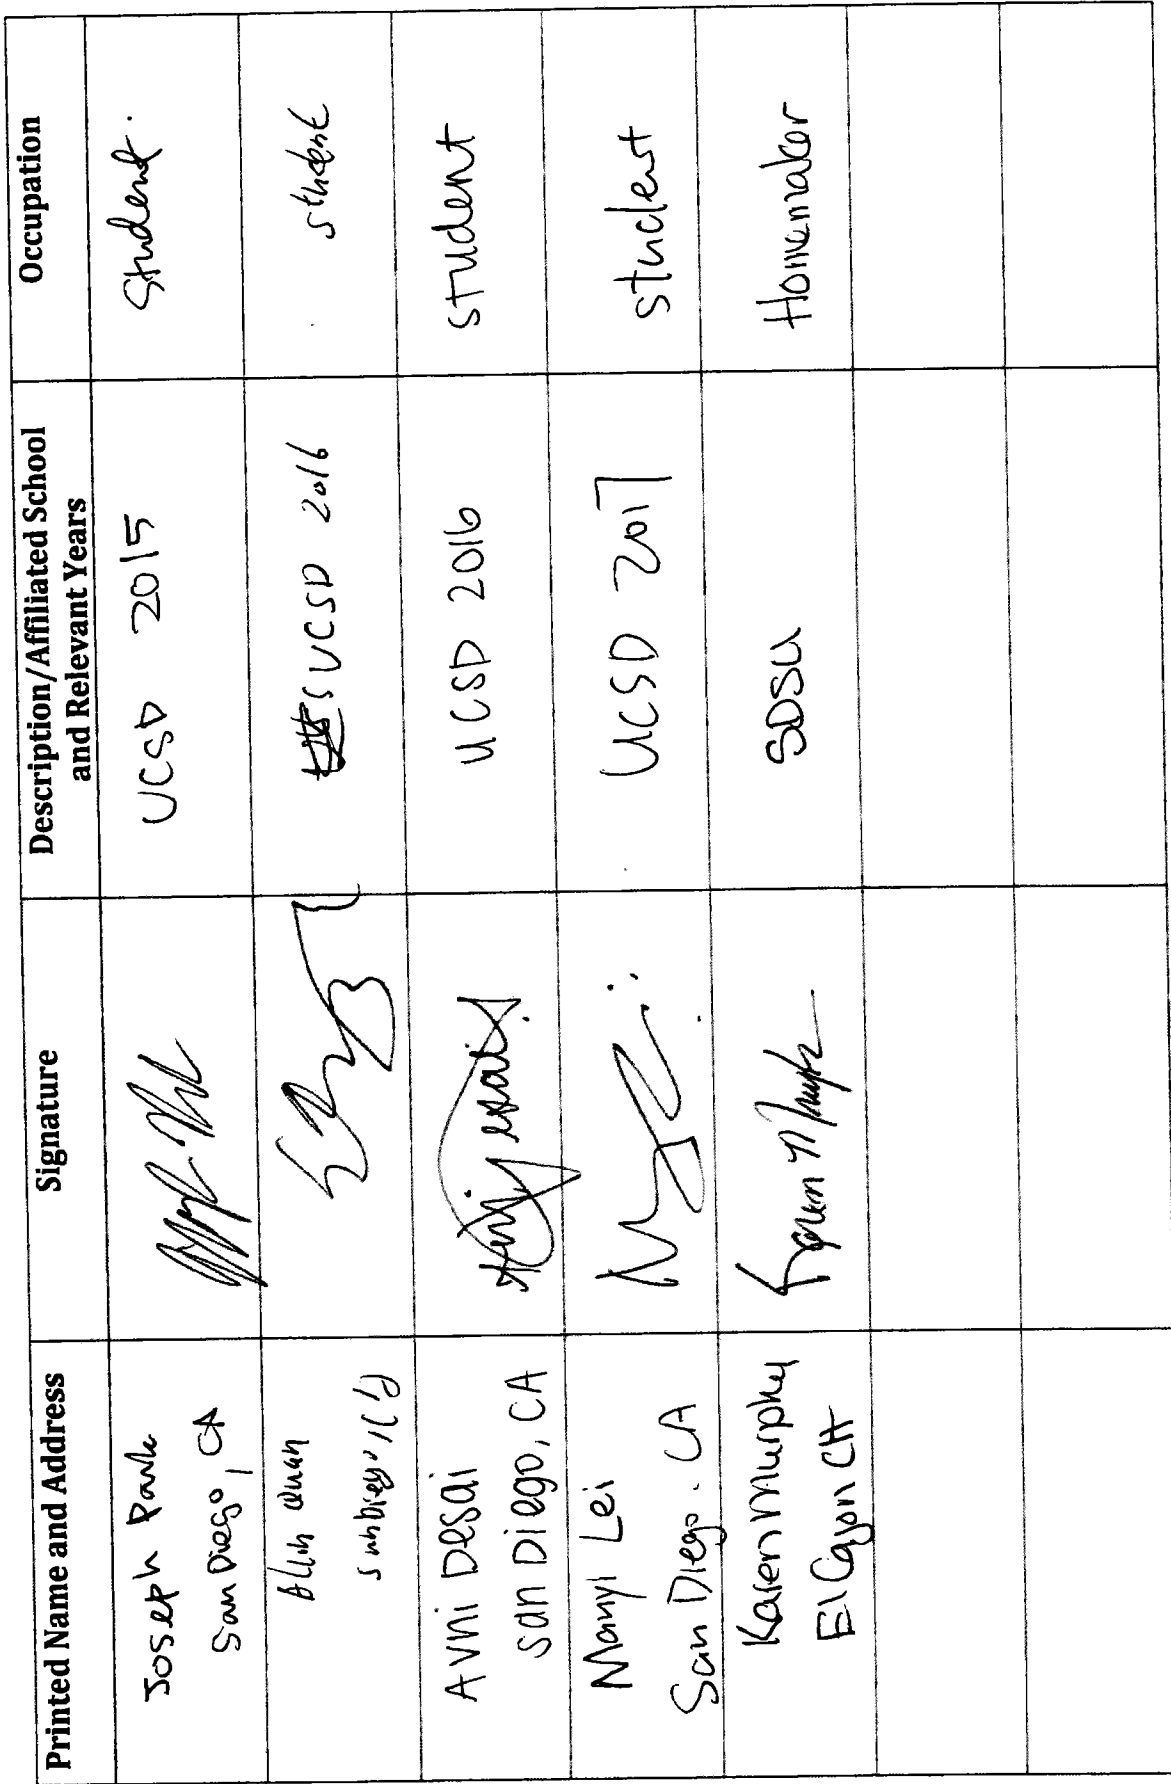 Printed Name and Address
Signature
Description/Affiliated School
and Relevant Years
Occupation
Joseph Park
San Diego, CA
UCSD 2015
Student.
San Diego, CA
UCSD 2016
student
Avni Desai
San Diego, CA
UCSD 2016
student
Manyi Lei
San Diego. CA
UCSD 2017
student
Karen Murphy
El Cajon CA
Karen Murphy
SDSU
Homemaker